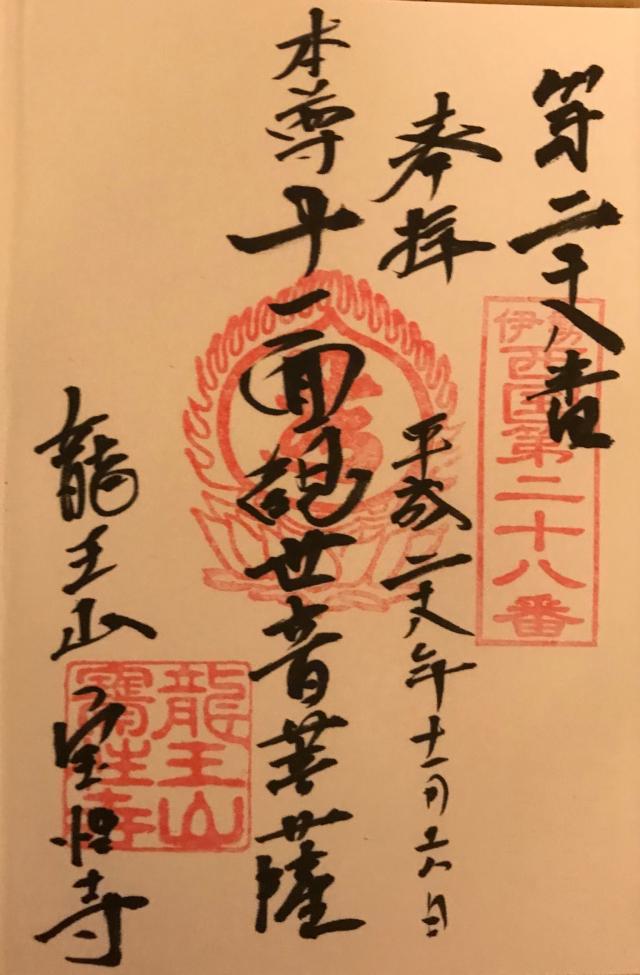 第二十八番
伊勢西国第二十八番
奉拝
平成二十八年十一月 日
本尊十一面観世音菩薩
龍王山 宝性寺
龍王山
寶性寺